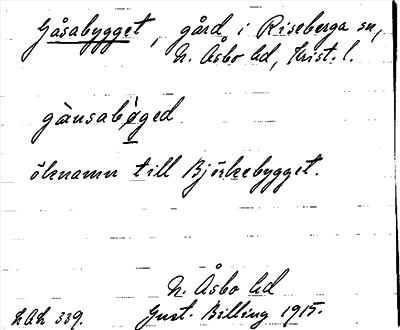 Gåsabygget, gård i Riseberga sn,
N. Åsbo hd, Krist. l.
gàusabøged
öknamn till Björkebygget.
N. Åsbo hd
LAL 339. Gust. Billing 1915.